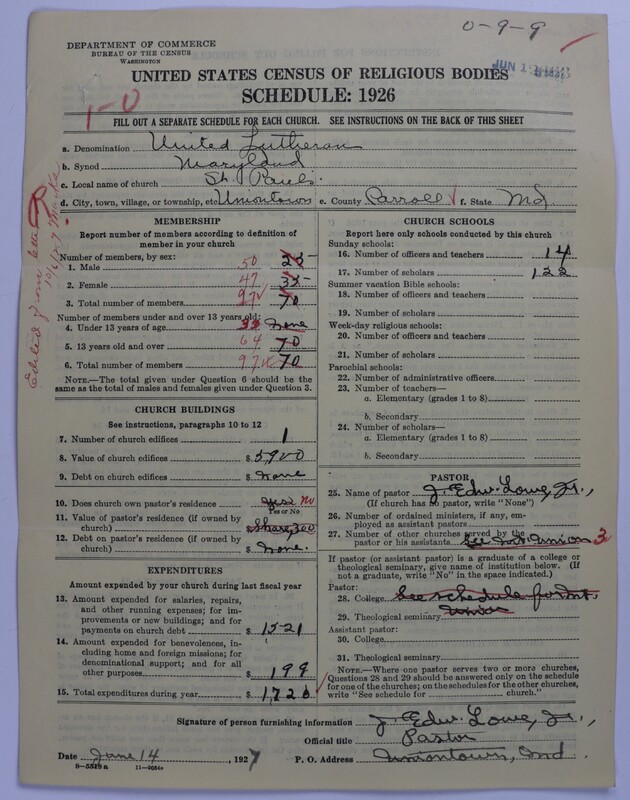 0-9-9
DEPARTMENT OF COMMERCE
BUREAU OF THE CENSUS
WASHINGTON
JUN 1
UNITED STATES CENSUS OF RELIGIOUS BODIES
SCHEDULE: 1926
1-0
FILL OUT A SEPARATE SCHEDULE FOR EACH CHURCH. SEE INSTRUCTIONS ON THE BACK OF THIS SHEET
a. Denomination United Lutheran
b. Synod Maryland
c. Local name of church St. Pauls.
d. City, town, village, or township, etc Uniontown e. County Carroll f. State Md.
Edited from letter
MEMBERSHIP
Report number of members according to definition of member in your church
Number of members, by sex:
1. Male 50
2. Female 47 35
3. Total number of members 97 70
Number of members under and over 13 years old:
4. Under 13 years of age 33 None
5. 13 years old and over 64 70
6. Total number of members 97 70
NOTE.—The total given under Question 6 should be the same as the total of males and females given under Question 3.
CHURCH BUILDINGS
See instructions, paragraphs 10 to 12
7. Number of church edifices 1
8. Value of church edifices $ 5900
9. Debt on church edifices $ None
10. Does church own pastor's residence yes No
Yes or No
11. Value of pastor's residence (if owned by church) $ Share, 300
12. Debt on pastor's residence (if owned by church) $ None.
EXPENDITURES
Amount expended by your church during last fiscal year
13. Amount expended for salaries, repairs, and other running expenses; for improvements or new buildings; and for payments on church debt $ 1521
14. Amount expended for benevolences, including home and foreign missions; for denominational support; and for all other purposes $ 199
15. Total expenditures during year $ 1720
CHURCH SCHOOLS
Report here only schools conducted by this church
Sunday schools:
16. Number of officers and teachers 14
17. Number of scholars 122
Summer vacation Bible schools:
18. Number of officers and teachers
19. Number of scholars
Week-day religious schools:
20. Number of officers and teachers
21. Number of scholars
Parochial schools:
22. Number of administrative officers
23. Number of teachers—
a. Elementary (grades 1 to 8)
b. Secondary
24. Number of scholars—
a. Elementary (grades 1 to 8)
b. Secondary
PASTOR
25. Name of pastor J. Edw. Lowe, Jr.,
(If church has no pastor, write "None")
26. Number of ordained ministers, if any, employed as assistant pastors
27. Number of other churches served by the pastor or his assistants See Mt. Union 3
If pastor (or assistant pastor) is a graduate of a college or theological seminary, give name of institution below. (If not a graduate, write "No" in the space indicated.)
Pastor:
28. College See schedule for Mt.
29. Theological seminary Union
Assistant pastor:
30. College
31. Theological seminary
NOTE.—Where one pastor serves two or more churches, Questions 28 and 29 should be answered only on the schedule for one of the churches; on the schedules for the other churches, write "See schedule for church."
Signature of person furnishing information J. Edw. Lowe, Jr.,
Official title Pastor
Date June 14, 1927 P. O. Address Uniontown, Md
8-5519a 11-9054